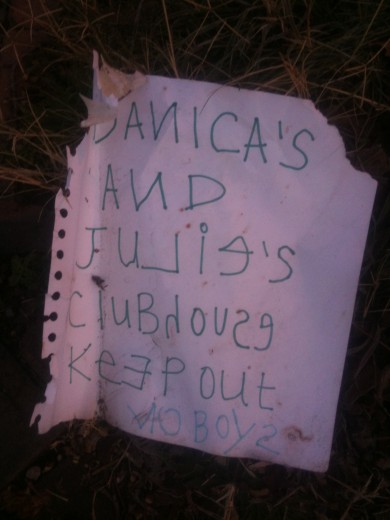 DANICA'S
AND
JULie'S
cluBhouse
KeeP out
BOYS